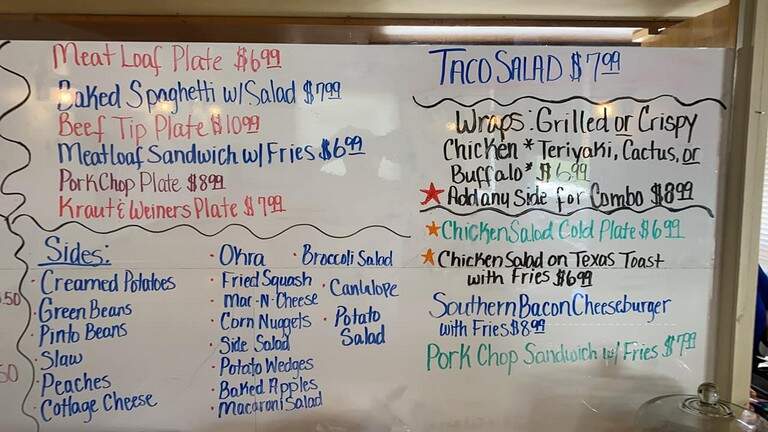 Meat Loaf Plate $6.99
Baked Spaghetti w/Salad $7.99
Beef Tip Plate $10.99
Meatloaf Sandwich w/ Fries $6.99
Pork Chop Plate $8.99
Kraut & Weiners Plate $7.99
Sides:
• Creamed Potatoes
• Green Beans
• Pinto Beans
• Slaw
• Peaches
• Cottage Cheese
• Okra
• Fried Squash
• Mac-N-Cheese
• Corn Nuggets
• Side Salad
• Potato Wedges
• Baked Apples
• Macaroni Salad
• Broccoli Salad
• Cantalope
• Potato
Salad
Taco Salad $7.99
Wraps: Grilled or Crispy
Chicken * Teriyaki, Cactus, or
Buffalo * $6.99
★ Add any Side for Combo $8.99
★ Chicken Salad Cold Plate $6.99
★ Chicken Salad on Texas Toast
with Fries $6.99
Southern Bacon Cheeseburger
with Fries $8.99
Pork Chop Sandwich w/ Fries $7.99